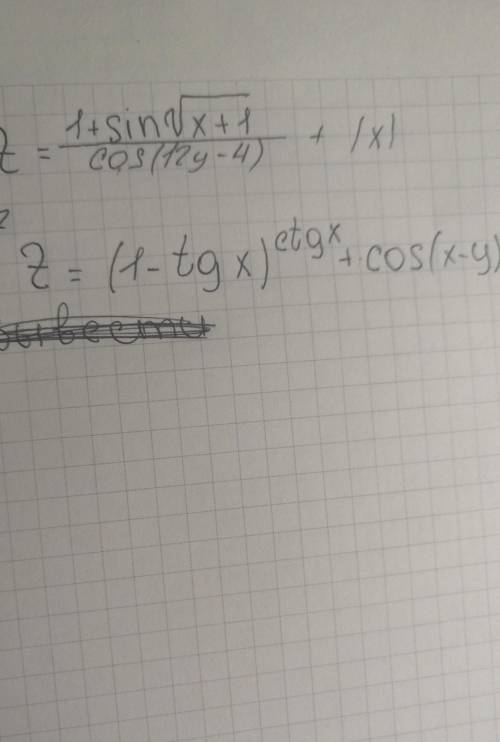 z = (1+sin√(x+1))/(cos(12y-4)) + |x|
2
z = (1-tg x)^(ctgx) + cos(x-y)